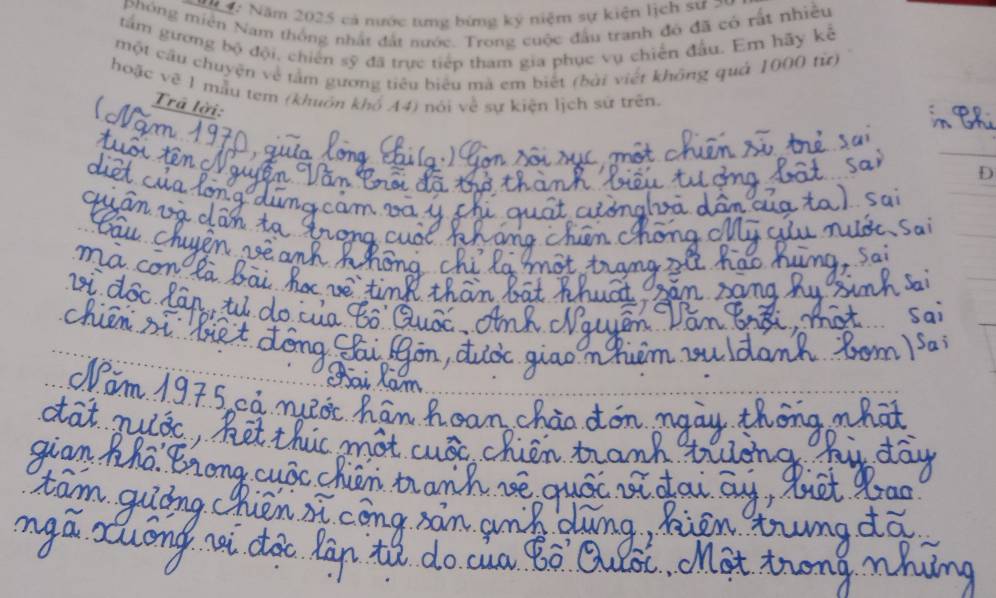 4: Năm 2025 cả nước tưng bừng kỷ niệm sự kiện lịch sử
phóng miền Nam thống nhất đất nước. Trong cuộc đấu tranh đó đã có rất nhiều
tấm gương bộ đội, chiến sỹ đã trực tiếp tham gia phục vụ chiến đấu. Em hãy kể
một câu chuyện về tấm gương tiêu biểu mà em biết (bài viết không quá 1000 từ)
hoặc vẽ 1 mẫu tem (khuôn khổ A4) nói về sự kiện lịch sử trên.
Trả lời:
(Năm 1970, giữa lòng Sài Gòn sôi sục, một chiến sĩ trẻ sai
tuổi tên Nguyễn Văn Trỗi đã trở thành biểu tượng bất sai
diệt của lòng dũng cảm và ý chí quật cường (và dân của ta) sai
quân và dân ta trong cuộc kháng chiến chống Mỹ cứu nước. sai
Câu chuyện về anh không chỉ là một trang sử hào hùng, sai
mà còn là bài học về tinh thần bất khuất, sẵn sàng hy sinh sai
vì độc lập, tự do của Tổ Quốc. Anh Nguyễn Văn Trỗi, một sai
chiến sĩ biệt động Sài Gòn, được giao nhiệm vụ (đánh bom) sai
Bài làm
Năm 1975, cả nước hân hoan chào đón ngày thống nhất
đất nước, kết thúc một cuộc chiến tranh trường kỳ đầy
gian khổ. Trong cuộc chiến tranh vệ quốc vĩ đại ấy, biết bao
tấm gương chiến sĩ cộng sản anh dũng, kiên trung đã
ngã xuống vì độc lập tự do của Tổ Quốc. Một trong những
in